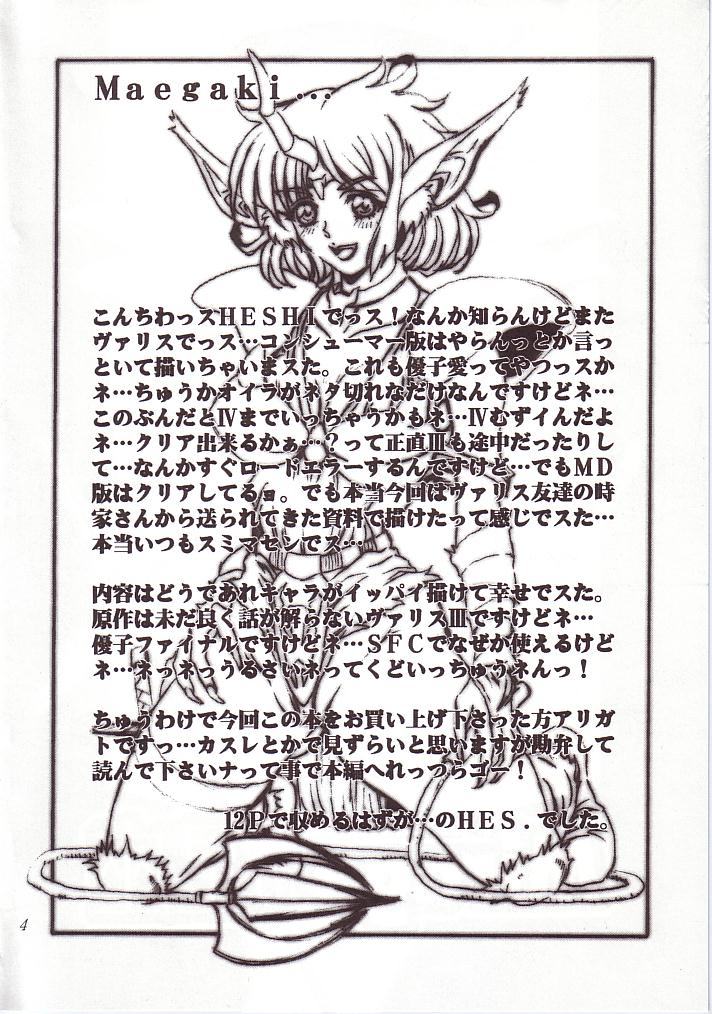 Maegaki...
こんちわっスHESHIでっス!なんか知らんけどまた
ヴァリスでっス…コンシューマー版はやらんっとか言っ
といて描いちゃいまスた。これも優子愛ってやつっスか
ネ…ちゅうかオイラがネタ切れなだけなんですけどネ…
このぶんだとⅣまでいっちゃうかもネ…Ⅳむずイんだよ
ネ…クリア出来るかぁ…?って正直Ⅲも途中だったりし
て…なんかすぐロードエラーするんですけど…でもMD
版はクリアしてるョ。でも本当今回はヴァリス友達の時
家さんから送られてきた資料で描けたって感じでスた…
本当いつもスミマセンでス…
内容はどうであれキャラがイッパイ描けて幸せでスた。
原作は未だ良く話が解らないヴァリスⅢですけどネ…
優子ファイナルですけどネ…SFCでなぜか使えるけど
ネ…ネっネっうるさいネってくどいっちゅうネんっ!
ちゅうわけで今回この本をお買い上げ下さった方アリガ
トですっ…カスレとかで見ずらいと思いますが勘弁して
読んで下さいナって事で本編へれっつらゴー!
12Pで収めるはずが…のHES.でした。
4